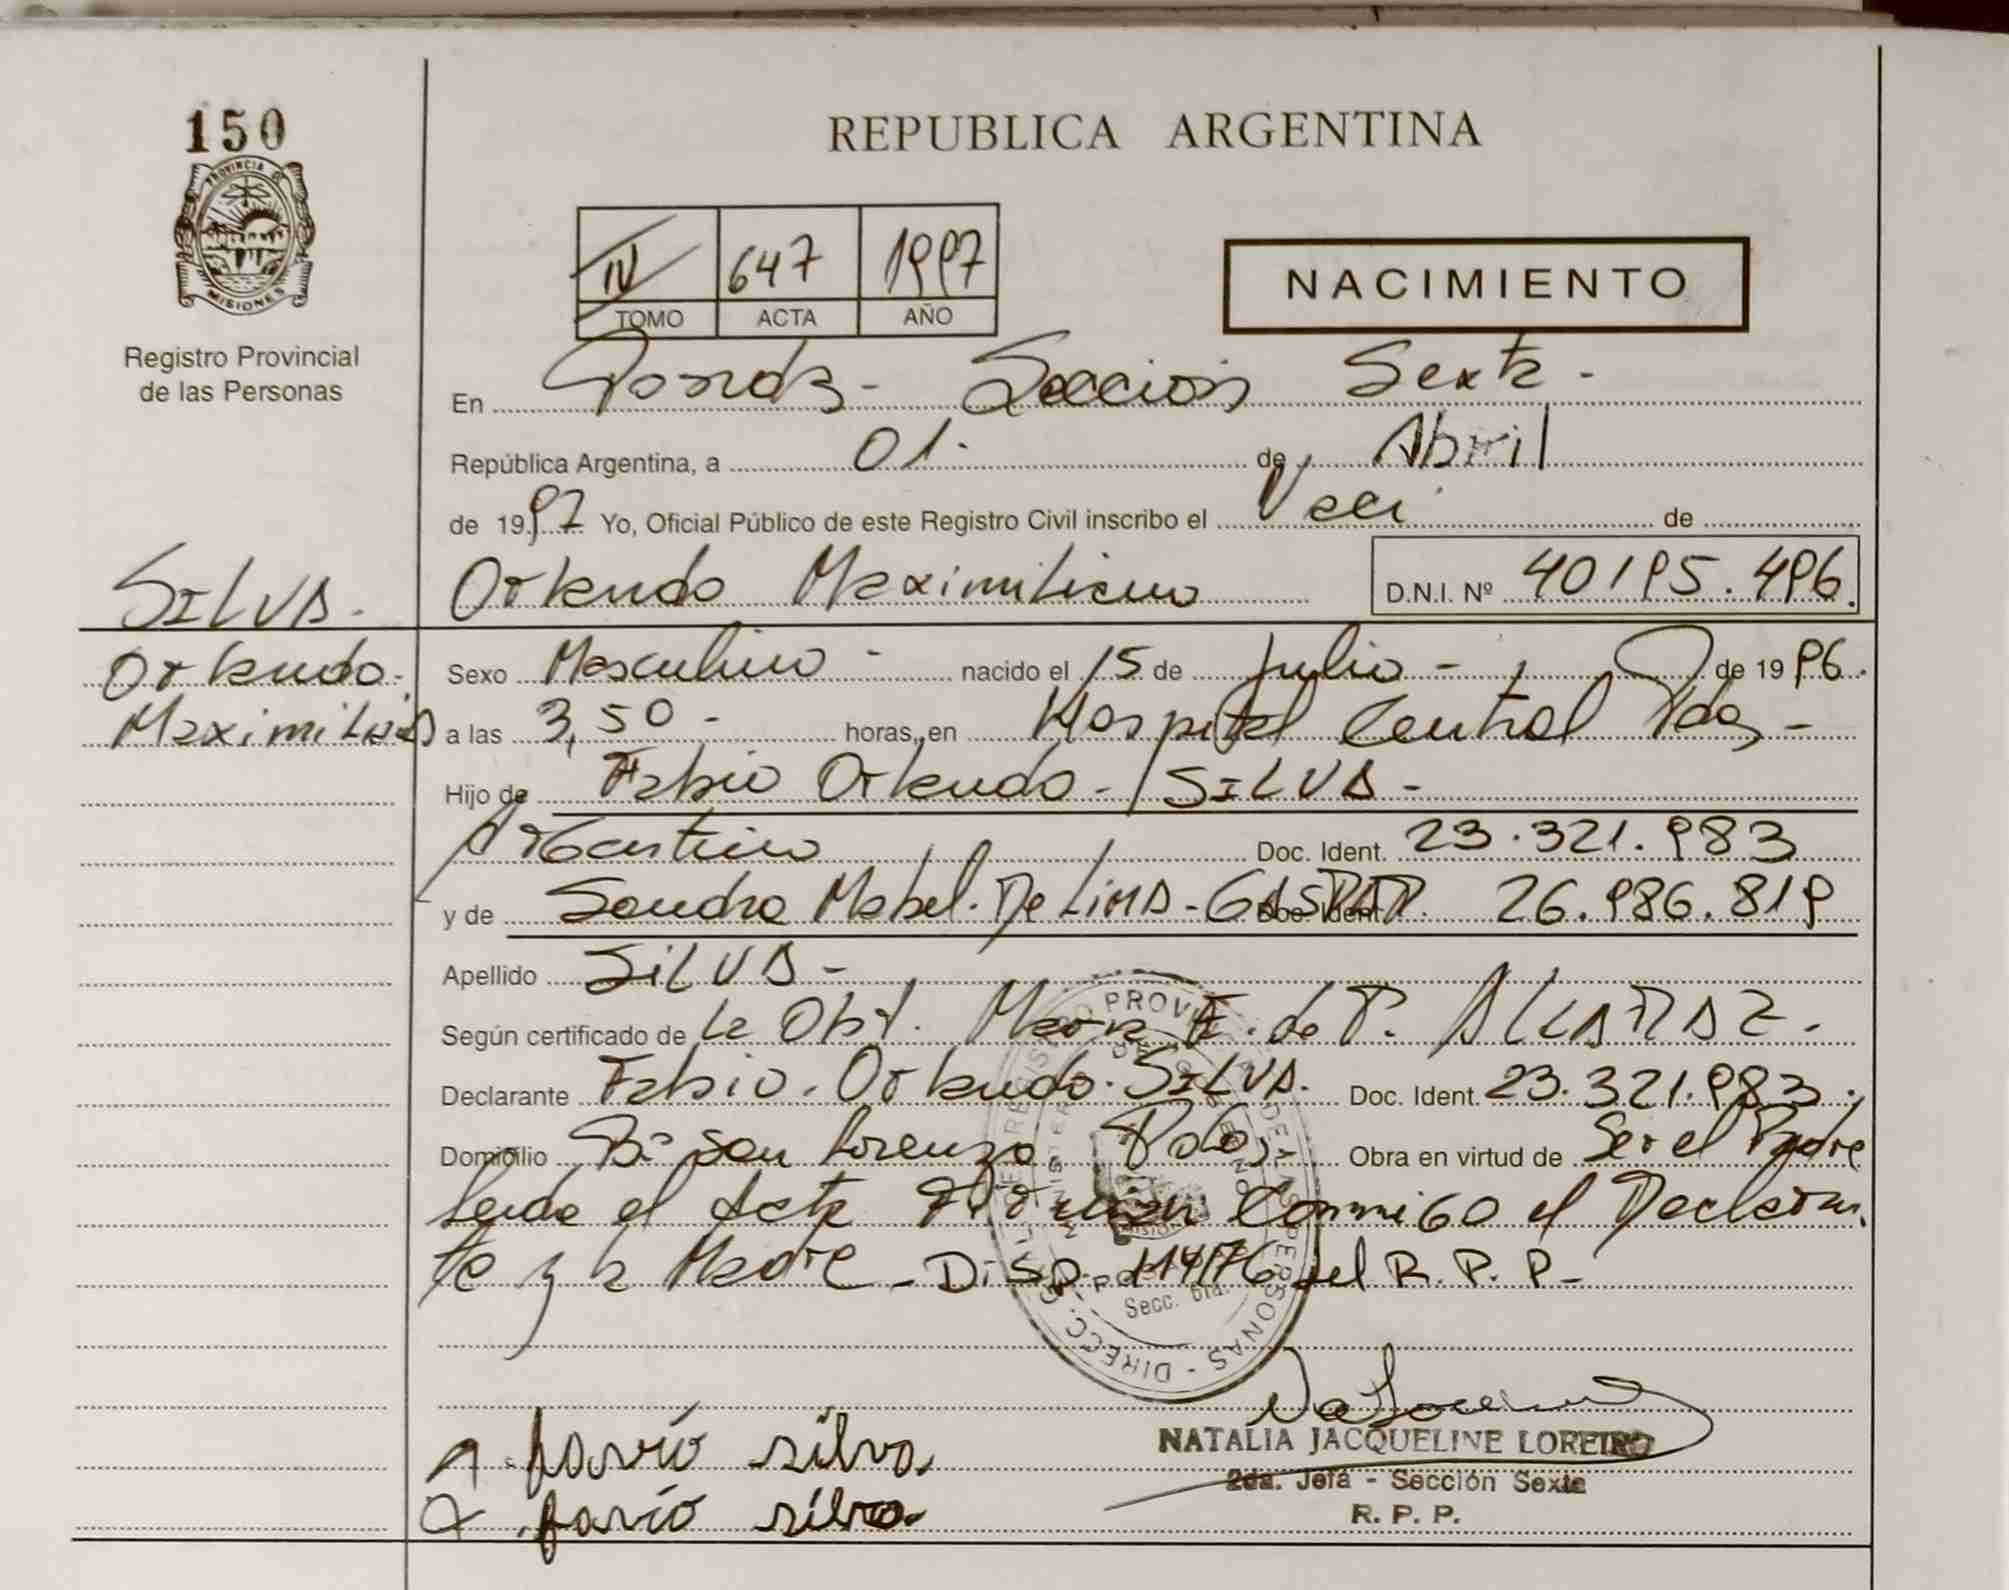 150
PROVINCIA DE
MISIONES
Registro Provincial
de las Personas
REPUBLICA ARGENTINA
IV 647 1997
TOMO ACTA AÑO
NACIMIENTO
En Posadas - Seccion Sexta -
República Argentina, a 01 - de Abril
de 1997 Yo, Oficial Público de este Registro Civil inscribo el Naci de
Orlando Maximiliano D.N.I. Nº 40195.496.
SILVA -
Orlando
Maximiliano
Sexo Masculino - nacido el 15 de Julio - de 1996.
a las 3,50 - horas, en Hospital Central Pdas -
Hijo de Fabio Orlando - SILVA -
Argentino Doc. Ident. 23.321.983
y de Sandra Mabel De LiMA - GASPAR Doc. Ident. 26.986.819
Apellido SiLVA -
Según certificado de la Obst. Maria E. de P. ALCARAZ -
Declarante Fabio Orlando SILVA. Doc. Ident. 23.321.983
Domicilio Bº San Lorenzo Pdas Obra en virtud de Ser el Padre
Leida el Acta Firman Conmigo el Declaran
te y la Madre - Disp. 114/76 del R.P.P -
Secc. 6ta.
favio silva
favio silva
NATALIA JACQUELINE LOREIRO
2da. Jefa - Sección Sexta
R. P. P.